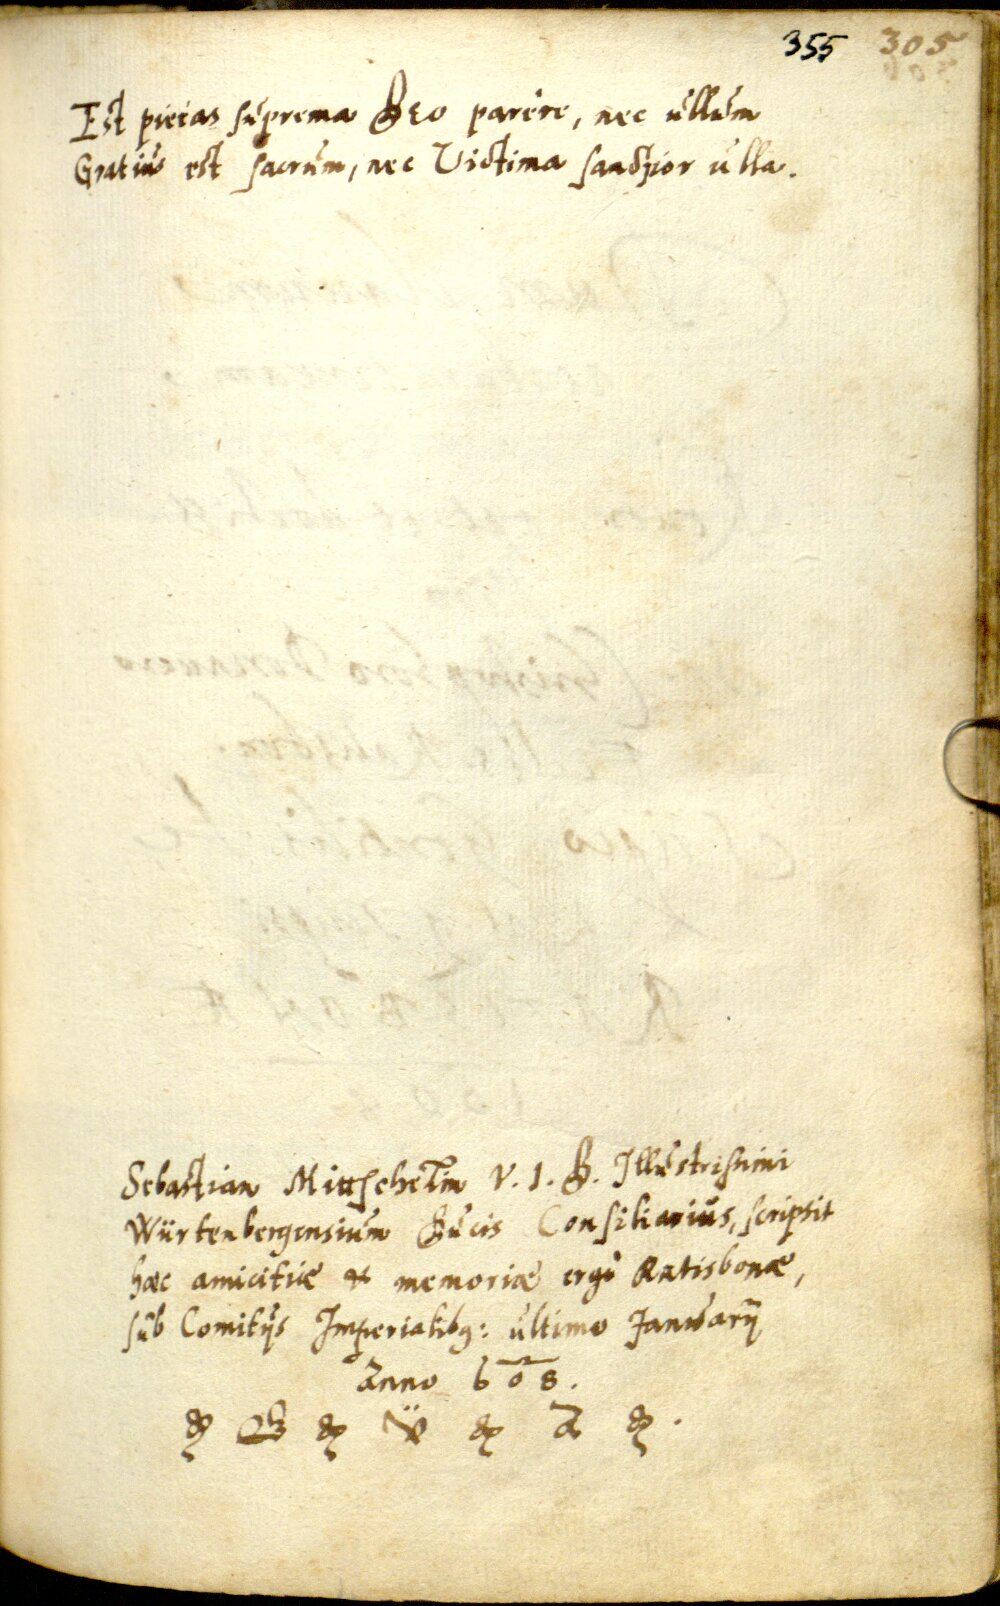 355 305
Est pietas suprema Deo parere, nec ullum
Gratius est sacrum, nec Victima sanctior ulla.
Sebastian Mittschelin V. I. D. Illustrissimi
Würtenbergensium Ducis Consiliarius, scripsit
hæc amicitiæ & memoriæ ergò Ratisbonæ,
sub Comitijs Imperialibq: ultimo Januarij
Anno 608.